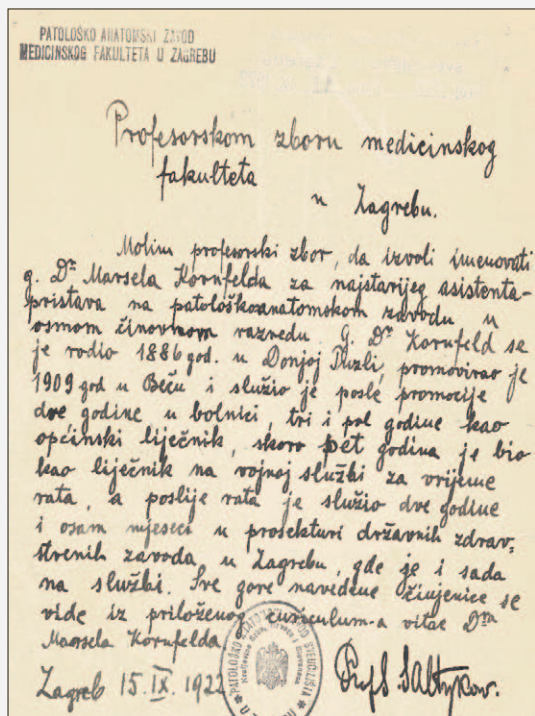 PATOLOŠKO ANATOMSKI ZAVOD
MEDICINSKOG FAKULTETA U ZAGREBU
Profesorskom zboru medicinskog
fakulteta
u Zagrebu.
Molim profesorski zbor, da izvoli imenovati
g. Dr Marsela Kornfelda za najstarijeg asistenta-
pristava na patološkoanatomskom zavodu u
osmom činovnom razredu. G. Dr Kornfeld se
je rodio 1886 god. u Donjoj Tuzli, promovirao je
1909 god u Beču i služio je posle promocije
dve godine u bolnici, tri i pol godine kao
općinski liječnik, skoro pet godina je bio
kao liječnik na vojnoj službi za vrijeme
rata, a poslije rata je služio dve godine
i osam mjeseci u prosekturi državnih zdrav-
stvenih zavoda u Zagrebu, gde je i sada
na službi. Sve gore navedene činjenice se
vide iz priloženog curiculum-a vitae Dra
Marsela Kornfelda.
Zagreb 15.IX.1922
Prof S. Saltykow.